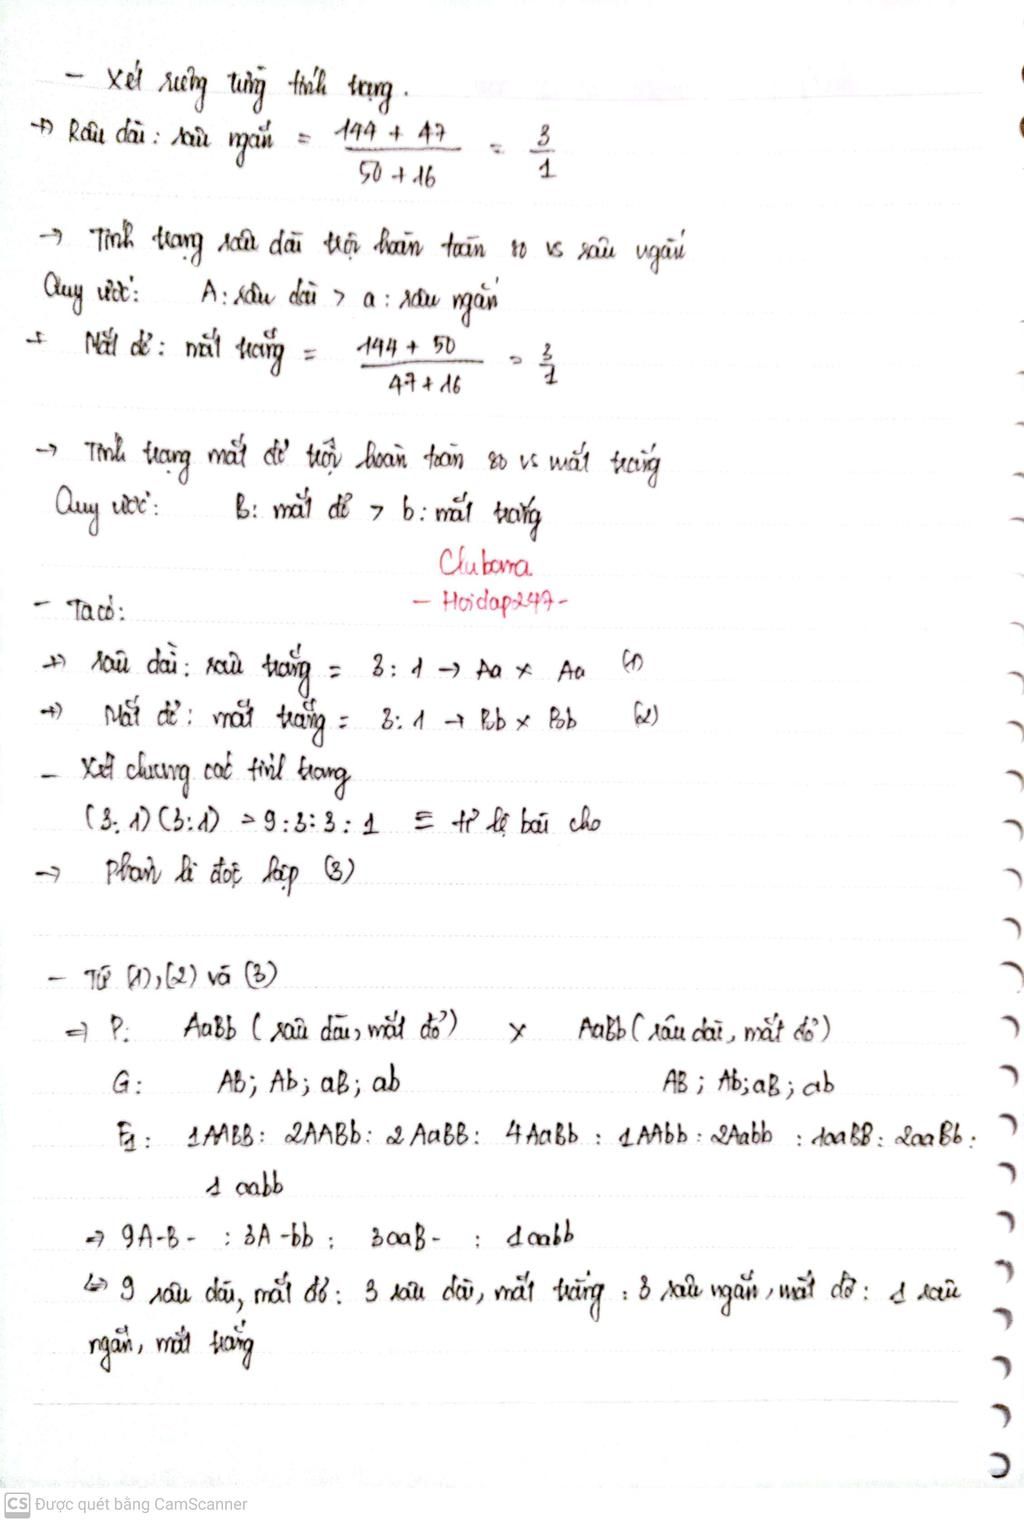 - Xét riêng từng tính trạng.
+) Râu dài : râu ngắn = (144 + 47)/(50 + 16) = 3/1
→ Tính trạng râu dài trội hoàn toàn so vs râu ngắn
Quy ước: A : râu dài > a : râu ngắn
+ Mắt đỏ : mắt trắng = (144 + 50)/(47 + 16) = 3/1
→ Tính trạng mắt đỏ trội hoàn toàn so vs mắt trắng
Quy ước: B: mắt đỏ > b : mắt trắng
Chubarra
- Hoidap247 -
- Ta có:
+) râu dài : râu trắng = 3 : 1 → Aa × Aa (1)
+) Mắt đỏ : mắt trắng = 3 : 1 → Bb × Bb (2)
- Xét chung các tính trạng
(3:1)(3:1) = 9:3:3:1 ≡ tỉ lệ bài cho
→ Phân li độc lập (3)
- Từ (1),(2) và (3)
⇒ P: AaBb (râu dài, mắt đỏ) × AaBb (râu dài, mắt đỏ)
G: AB; Ab; aB; ab AB; Ab; aB; ab
F1: 1AABB : 2AABb : 2AaBB : 4AaBb : 1AAbb : 2Aabb : 1aaBB : 2aaBb :
1 aabb
⇒ 9A-B- : 3A-bb : 3aaB- : 1aabb
↪ 9 râu dài, mắt đỏ : 3 râu dài, mắt trắng : 3 râu ngắn, mắt đỏ : 1 râu
ngắn, mắt trắng
CS Được quét bằng CamScanner